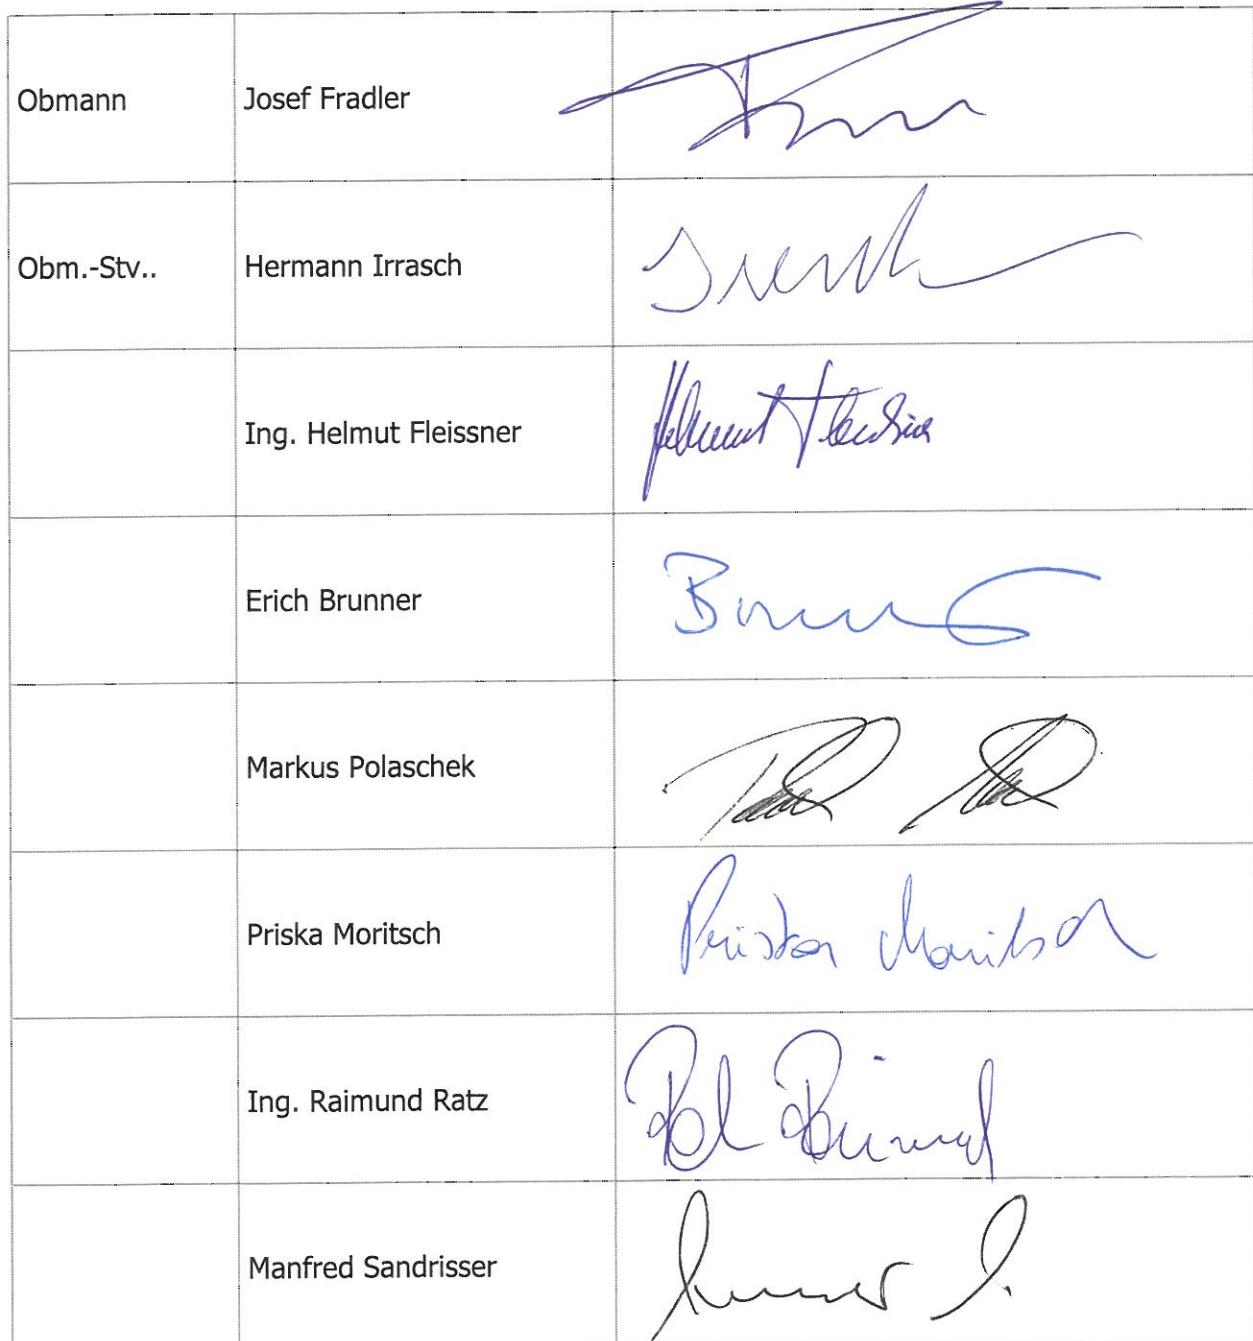 Obmann Josef Fradler
Obm.-Stv.. Hermann Irrasch
Ing. Helmut Fleissner Helmut Fleissner
Erich Brunner
Markus Polaschek
Priska Moritsch Priska Moritsch
Ing. Raimund Ratz
Manfred Sandrisser